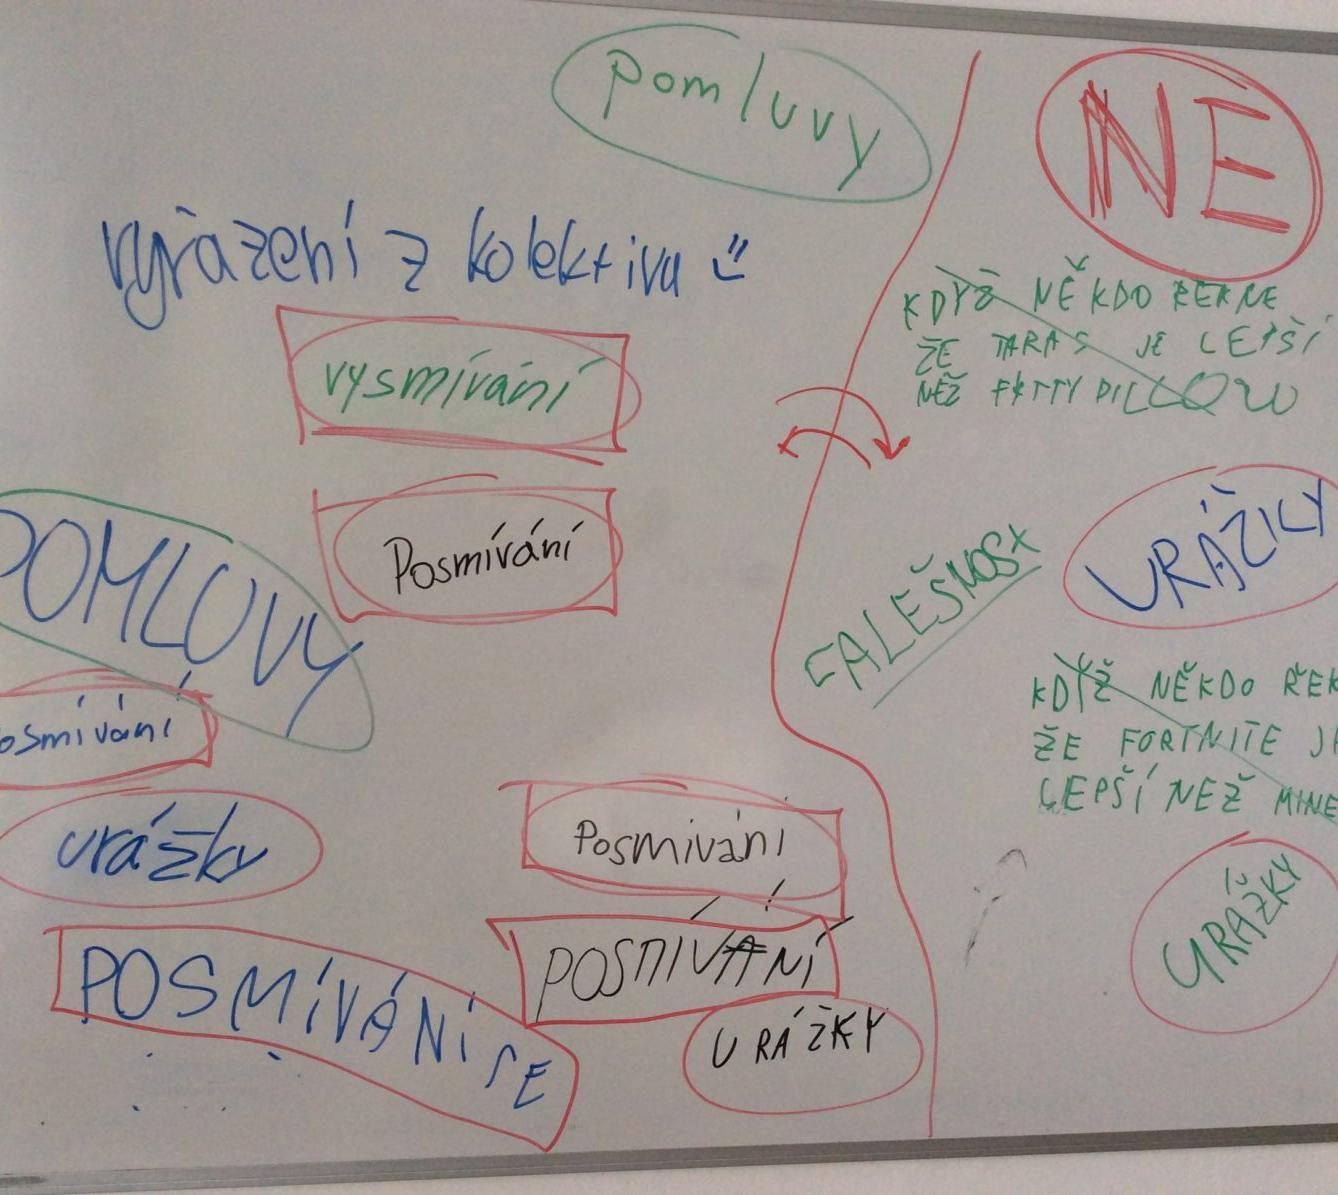 pomluvy
vyřazení z kolektivu
vysmívání
Posmívání
POMLUVY
osmívání
urážky
POSMÍVÁNÍ SE
Posmívání
POSMÍVÁNÍ
URÁŽKY
NE
KDYŽ NĚKDO ŘEKNE
ŽE TARAS JE LEPŠÍ
NEŽ
FALEŠNOST
URÁŽKY
KDYŽ NĚKDO ŘEK
ŽE FORTNITE JE
LEPŠÍ NEŽ MINE
URÁŽKY